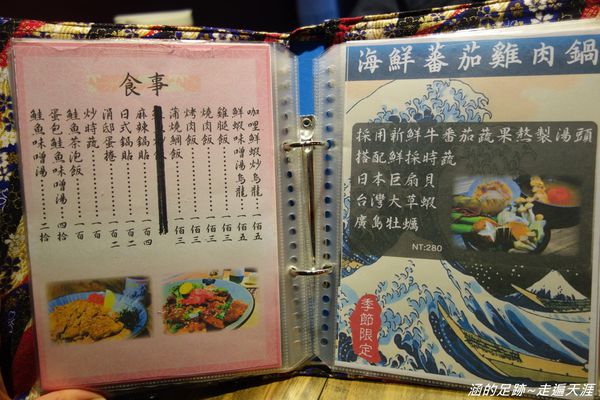 食事
咖哩鮮蝦炒烏龍…一佰五
鮮蝦味噌湯烏龍…一佰五
雞腿飯…一佰三
燒肉飯…一佰三
烤肉飯…一佰三
蒲燒鯛飯…一佰三
麻辣鍋貼…一百四
日式鍋貼…一百二
消邸蛋捲…一百二
炒時蔬…一百
鮭魚茶泡飯…一百
蛋包鮭魚味噌湯…四拾
鮭魚味噌湯…二拾
海鮮蕃茄雞肉鍋
採用新鮮牛番茄蔬果熬製湯頭
搭配鮮採時蔬
日本巨扇貝
台灣大草蝦
廣島牡蠣
NT:280
季節限定
涵的足跡~走遍天涯